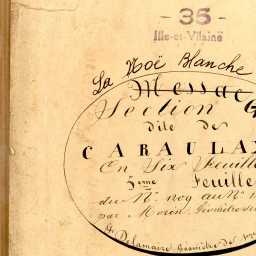 - 35 -
Ille-et-Vilaine
La Noë Blanche
Messac
Section G
dite de
CARAULA
En Six Feuille
3ème Feuille
du N° 809 au N°
par Morin Géomètre
Delamaire Géomètre de